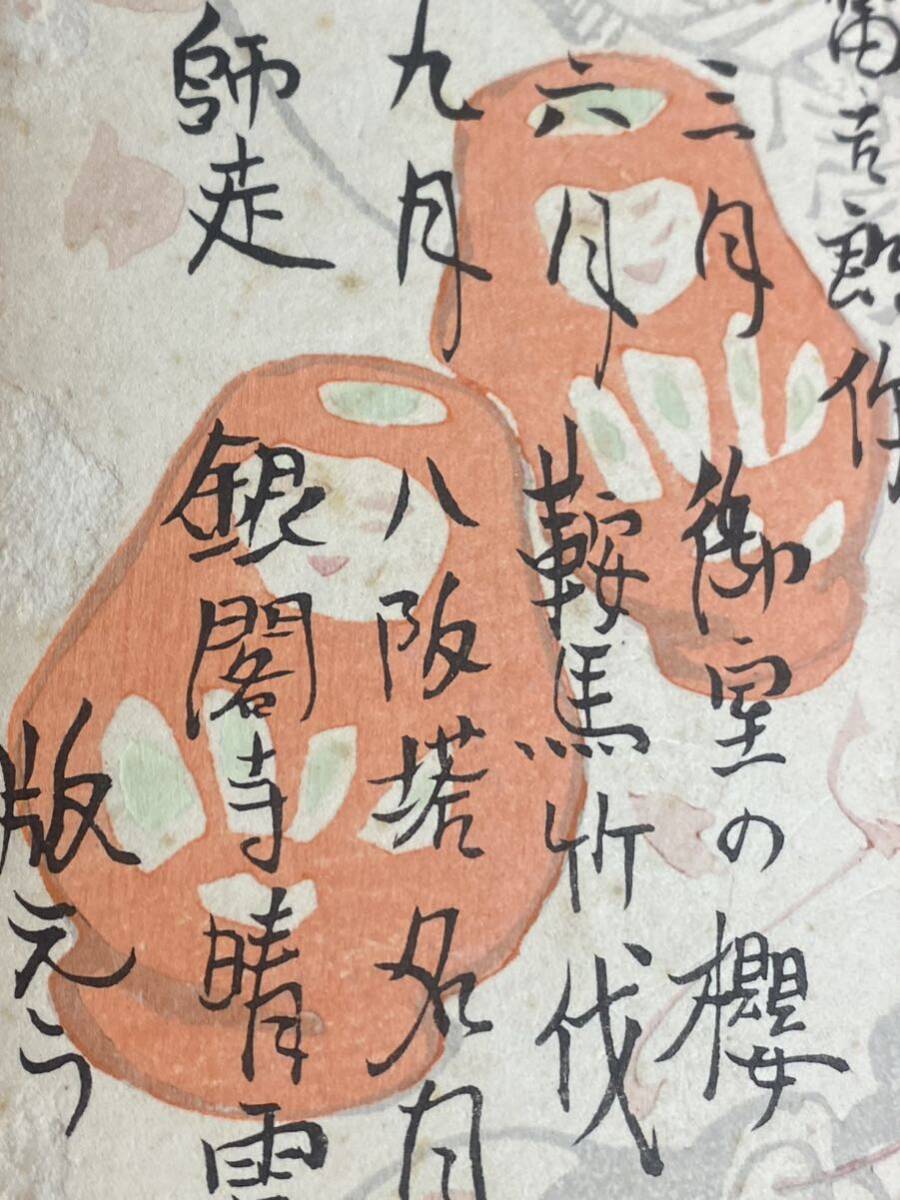 富吉郎作
三月 御室の櫻
六月 鞍馬竹伐
九月 八阪塔名月
師走 銀閣寺晴雪
版元う